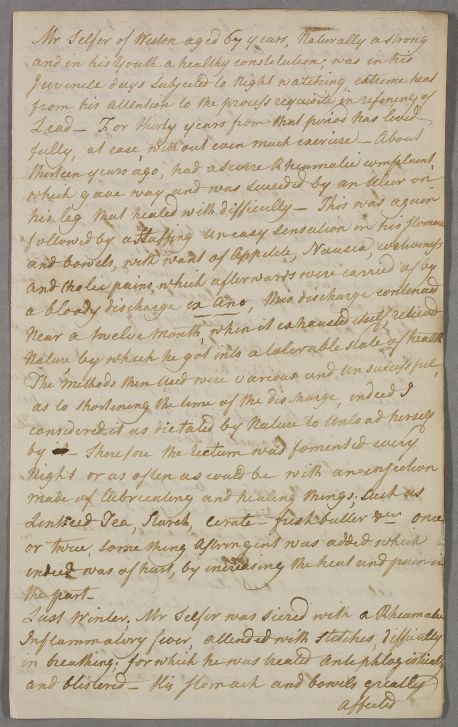 Mr Selfer of Weston aged 67 years, Naturally a strong
and in his Youth a healthy constitution; was in his
Juvenile days Subjected to Night watching extreme heat
from his attention to the process requisite in refineing of
Lead — For thirty years from that period has lived
fully, at ease, without even much exercise — About
thirteen years ago, had a severe Rheumatic complaint
which gave way and was succeeded by an Ulcer on
his leg that healed with difficulty — This was again
followed by a Stuffing uneasy sensation in his stomach
and bowels, with want of Appetite, Nausea, costiveness
and cholic pains, which afterwards were carried of by
a bloody discharge ex Ano, this discharge continued
near a twelve month, when it exhausted itself, relieved
Nature by which he got into a tolerable state of health
The methods then Used were various and unsuccessful,
as to shortening the time of the discharge, indeed I
considered it as dictated by Nature to Unload herself
by it Therefore the rectum was fomented every
Night or as often as could be with an injection
made of Lubricating and healing things, Such as
Lintseed Tea, Starch, cerate fresh butter &c once
or twice, some thing Astringent was added which
indeed was of hurt, by increasing the heat and pain in
the part.
Last Winter, Mr Selfer was Siezed with a Rheumatic
Inflammatory fever, attended with Stitches, difficulty
in breathing; for which he was treated Antiphlogistically
and blistered — His stomach and bowels greatly
affected